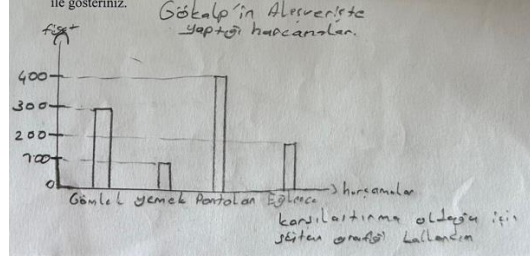 ile gösteriniz.
Gökalp'in Alışverişte
yaptığı harcamalar.
fiyat
400
300
200
100
0
Gömlek yemek Pantolon Eğlence
harcamalar
karşılaştırma olduğu için
sütun grafiği kullandım